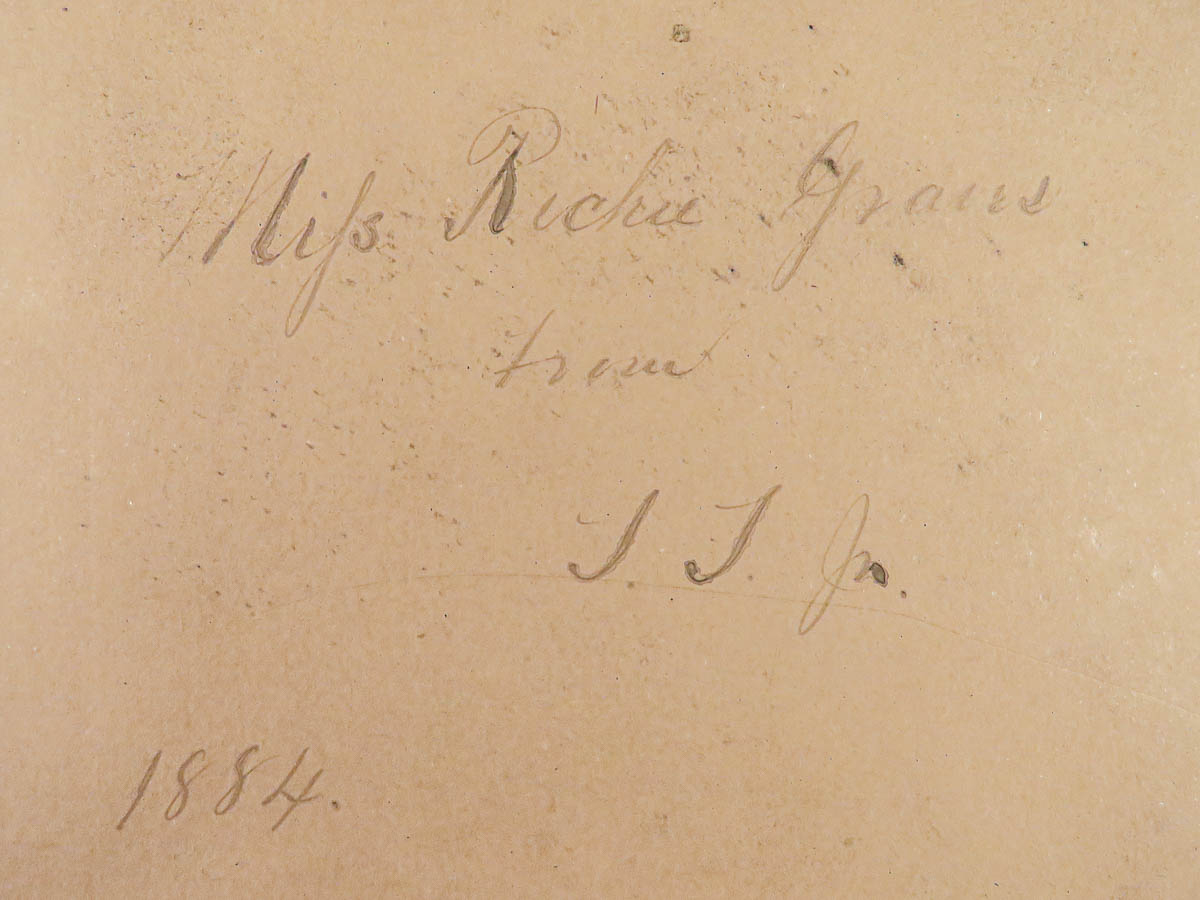 Miss Richie Graves
from
J. J. Jr.
1884.